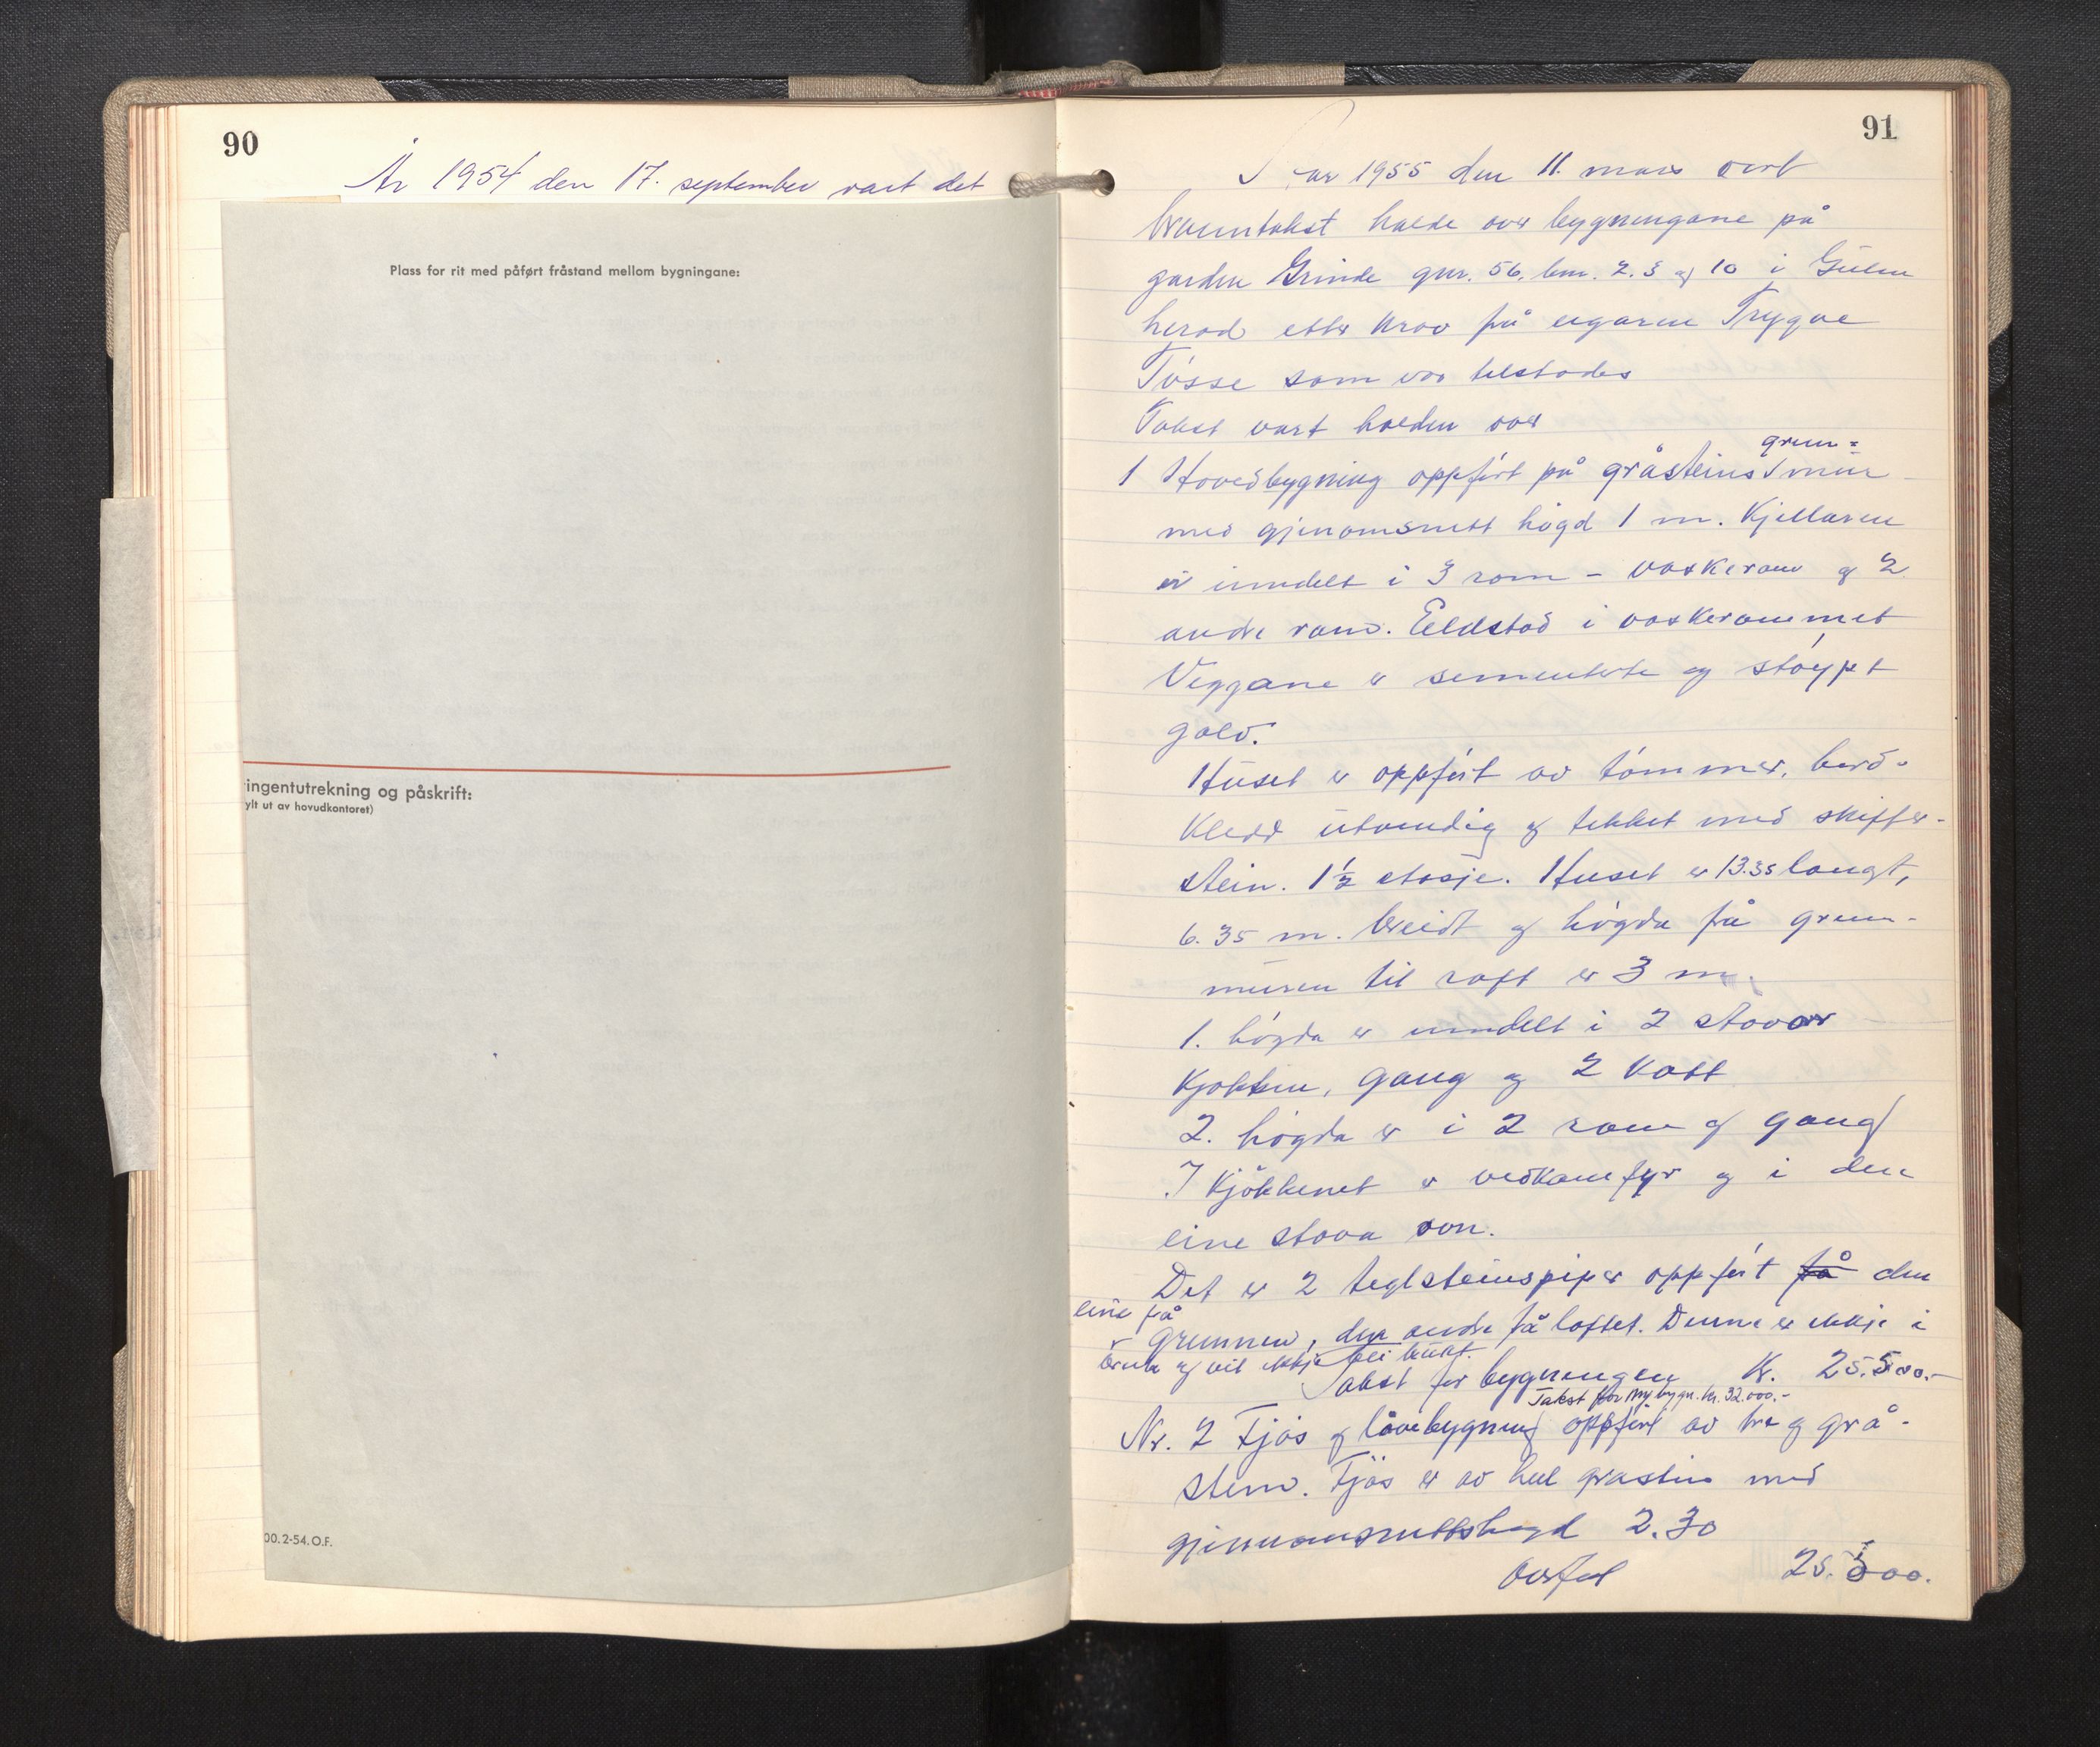 90
År 1954 den 17. september vart det
Plass for rit med påført fråstand mellom bygningane:
ingentutrekning og påskrift:
ylt ut av hovudkontoret)
00.2-54.O.F.
91
år 1955 den 11. mars vart
branntakst halde over bygningane på
garden Grinde gnr. 56. bnr. 2.3 og 10 i Gulen
herad etter krav frå eigaren Trygve
Tósse som var tilstades
Takst vart halden over
1 Hovedbygning oppfórt på gråsteins grun=
mur
med gjenomsnett hógd 1 m. Kjellaren
er inndelt i 3 rom – vaskerom og 2
andre rom. Eeldstad i vaskerommet
Veggane er sementerte og stóypt
golv.
Huset er oppfórt av tómmer, bord-
kledd utvendig og tekket med skiffer-
stein. 1½ etasje. Huset er 13.35 langt,
6.35 m. breidt og hógda frå grun-
muren til raft er 3 m.
1. hógda er inndelt i 2 stover
Kjøkken, gang og 2 kott
2. hógda er i 2 rom og gang
I Kjökkenet er vedkomfyr og i den
eine stova ovn.
Det er 2 teglsteinspiper oppfórt på den
eine frå
grunnen, den andre frå loftet. Denne er ikkje i
bruk og vil ikkje bli brukt.
Takst for bygningen kr. 25.500.–
Takst for ny bygn. kr. 32.000.–
Nr. 2 Fjós og låvebygning oppfórt av tre og grå-
stein. Fjós er av heil gråstein med
gjennomsnittshøgd 2.30
Overført 25.500.